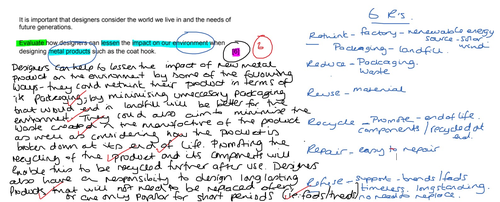 It is important that designers consider the world we live in and the needs of
future generations.
Evaluate how designers can lessen the impact on our environment when
designing metal products such as the coat hook.
Designers can help to lessen the impact of new metal
product on the environment by some of the following
ways- they could rethink their product in terms of
its packaging, by minimising unnecessary packaging
that would end in landfill will be better for the
environment. They could also aim to minimise the
waste created in the manufacture of the product
as well as considering how the product is
broken down at its end of life. Promoting the
recycling of the product and its component will
enable this to be recycled further after use. Designers
also have an responsibility to design long lasting
products that will not need to be replaced often
or are only popular for short periods (ie. fads/trends)
6 R's
Rethink - factory - renewable energy
source - solar
wind
Packaging - landfill.
Reduce - Packaging.
Waste
Reuse - material
Recycle - Promote - end of life.
components / recycled at
end.
Repair - easy to repair
Refuse - supports - brands / fads
timeless. longstanding.
no need to replace.